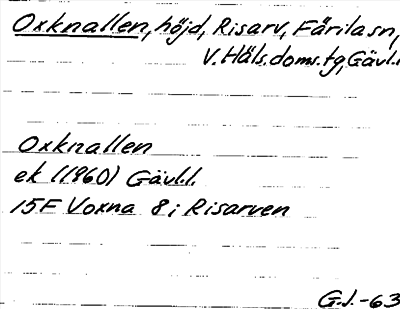 Oxknallen, höjd, Risarv, Färila sn,
V. Häls. doms. tg, Gävl.l.
Oxknallen
ek (1960) Gävl.l.
15F Voxna 8i Risarven
G.J.-63